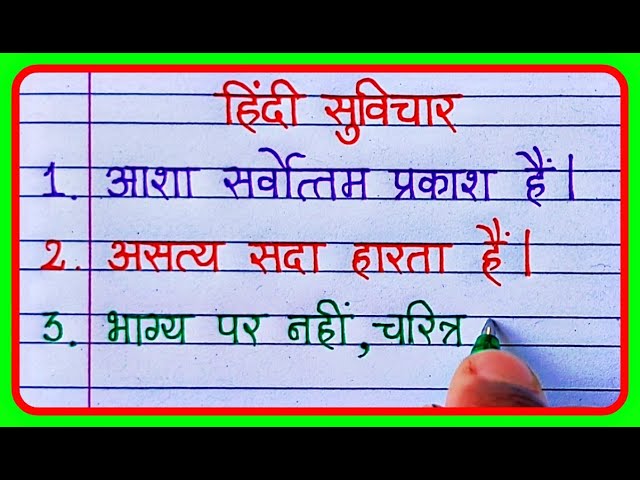 हिंदी सुविचार
1. आशा सर्वोत्तम प्रकाश हैं।
2. असत्य सदा हारता हैं।
3. भाग्य पर नहीं, चरित्र